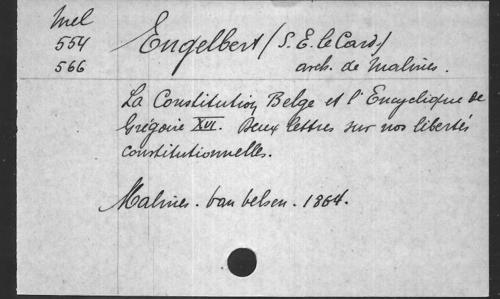 Mel
554
566
Engelbert (S. E. le Card.)
arch. de Malines.
La Constitution Belge et l'Encyclique de
Grégoire XVI. Deux lettres sur nos libertés
constitutionnelles.
Malines. van velsen. 1864.